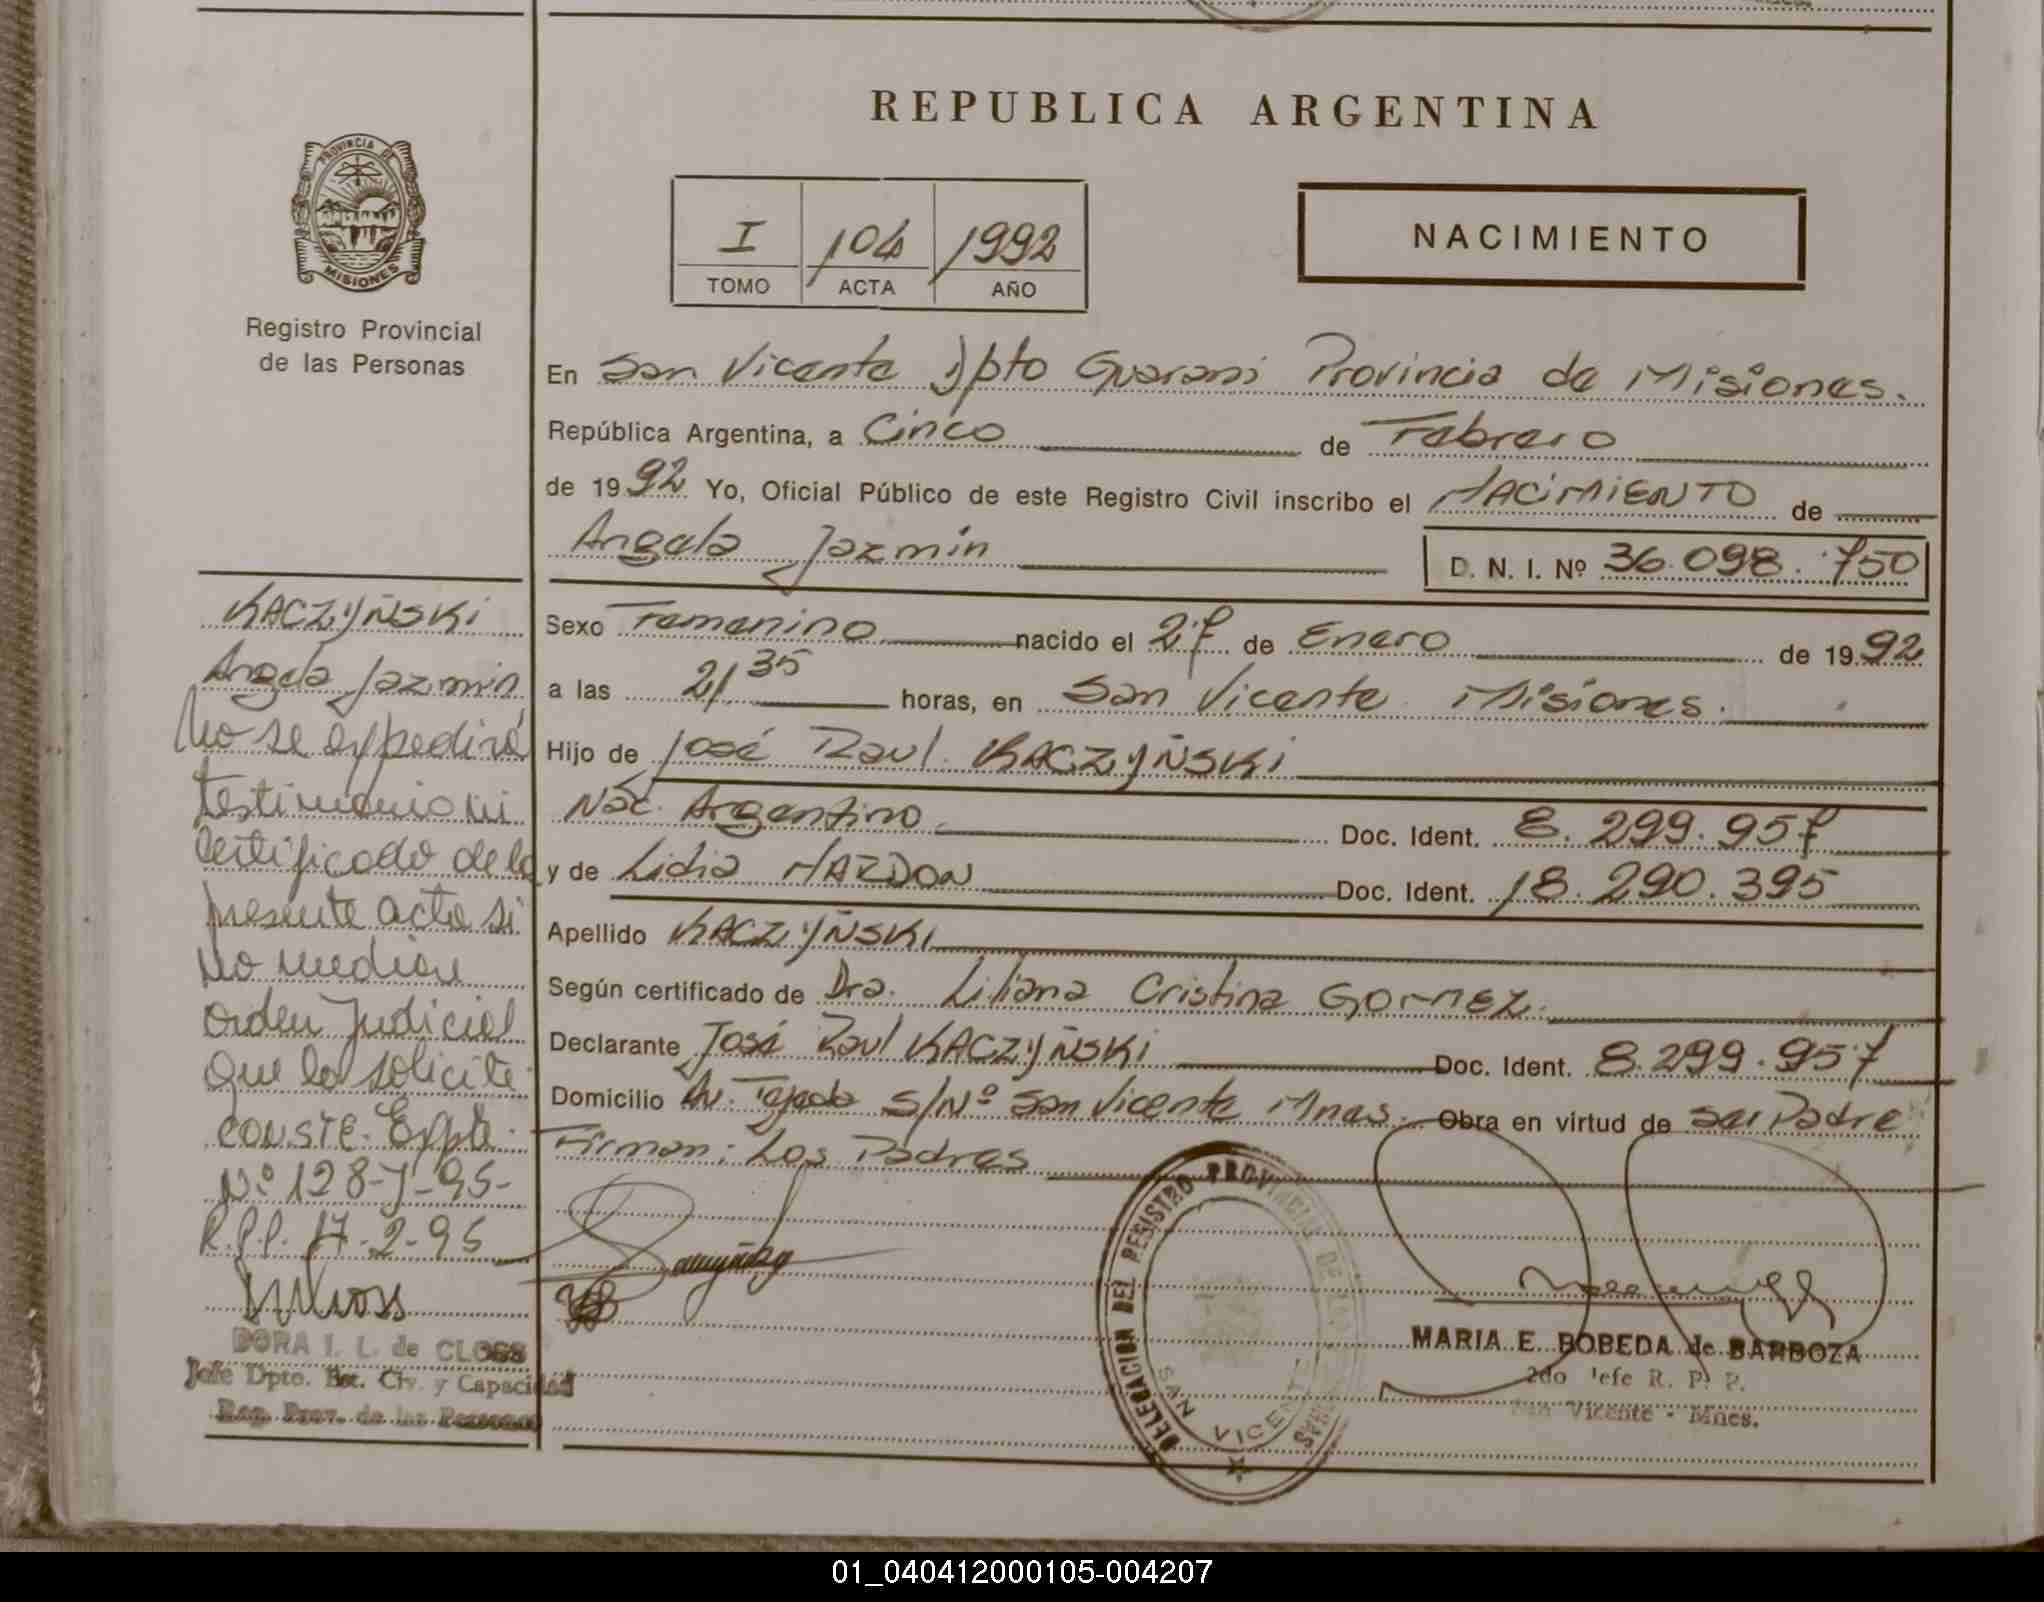 REPUBLICA ARGENTINA
PROVINCIA DE
MISIONES
Registro Provincial
de las Personas
I 104 1992
TOMO ACTA AÑO
NACIMIENTO
En San Vicente Dpto Guarani Provincia de Misiones.
República Argentina, a Cinco de Febrero
de 1992 Yo, Oficial Público de este Registro Civil inscribo el NACIMIENTO de
Angela Jazmin
D. N. I. Nº 36.098.750
Sexo Femenino nacido el 27 de Enero de 1992
a las 21,35 horas, en San Vicente Misiones.
Hijo de José Raul KACZYÑSKi
Nac. Argentino Doc. Ident. 8.299.957
y de Lidia HARDON Doc. Ident. 18.290.395
Apellido KACZYÑSKi
Según certificado de Dra. Liliana Cristina GOMEZ.
Declarante José Raul KACZYÑSKi Doc. Ident. 8.299.957
Domicilio Av. Tejeda S/Nº San Vicente Mnes. Obra en virtud de ser Padre
Firman: Los Padres
KACZYÑSKi
Angela Jazmin
No se expedirá
testimonio ni
certificado de la
presente acta si
no median
orden Judicial
que lo solicite
CONSTE. Expte.
Nº 128-J-95-
R.P.P. 17-2-95
DORA I. L. de CLOSS
Jefe Dpto. Est. Civ. y Capacidad
Reg. Prov. de las Personas
DELEGACION DEL REGISTRO PROVINCIAL DE LAS PERSONAS
SAN VICENTE
MARIA E. BOBEDA de BARBOZA
2do Jefe R. P. P.
San Vicente - Mnes.
01_040412000105-004207